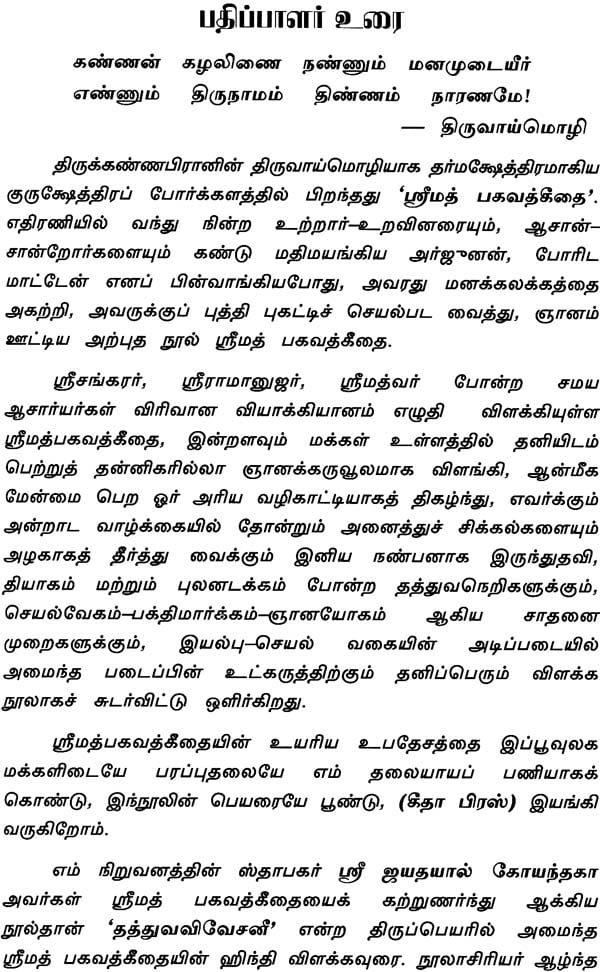 பதிப்பாளர் உரை
கண்ணன் கழலிணை நண்ணும் மனமுடையீர்
எண்ணும் திருநாமம் திண்ணம் நாரணமே!
— திருவாய்மொழி
திருக்கண்ணபிரானின் திருவாய்மொழியாக தர்மக்ஷேத்திரமாகிய
குருக்ஷேத்திரப் போர்க்களத்தில் பிறந்தது ‘ஸ்ரீமத் பகவத்கீதை’.
எதிரணியில் வந்து நின்ற உற்றார்–உறவினரையும், ஆசான்–
சான்றோர்களையும் கண்டு மதிமயங்கிய அர்ஜுனன், போரிட
மாட்டேன் எனப் பின்வாங்கியபோது, அவரது மனக்கலக்கத்தை
அகற்றி, அவருக்குப் புத்தி புகட்டிச் செயல்பட வைத்து, ஞானம்
ஊட்டிய அற்புத நூல் ஸ்ரீமத் பகவத்கீதை.
ஸ்ரீசங்கரர், ஸ்ரீராமானுஜர், ஸ்ரீமத்வர் போன்ற சமய
ஆசார்யர்கள் விரிவான வியாக்கியானம் எழுதி விளக்கியுள்ள
ஸ்ரீமத்பகவத்கீதை, இன்றளவும் மக்கள் உள்ளத்தில் தனியிடம்
பெற்றுத் தன்னிகரில்லா ஞானக்கருவூலமாக விளங்கி, ஆன்மீக
மேன்மை பெற ஓர் அரிய வழிகாட்டியாகத் திகழ்ந்து, எவர்க்கும்
அன்றாட வாழ்க்கையில் தோன்றும் அனைத்துச் சிக்கல்களையும்
அழகாகத் தீர்த்து வைக்கும் இனிய நண்பனாக இருந்துதவி,
தியாகம் மற்றும் புலனடக்கம் போன்ற தத்துவநெறிகளுக்கும்,
செயல்வேகம்–பக்திமார்க்கம்–ஞானயோகம் ஆகிய சாதனை
முறைகளுக்கும், இயல்பு–செயல் வகையின் அடிப்படையில்
அமைந்த படைப்பின் உட்கருத்திற்கும் தனிப்பெரும் விளக்க
நூலாகச் சுடர்விட்டு ஒளிர்கிறது.
ஸ்ரீமத்பகவத்கீதையின் உயரிய உபதேசத்தை இப்பூவுலக
மக்களிடையே பரப்புதலையே எம் தலையாயப் பணியாகக்
கொண்டு, இந்நூலின் பெயரையே பூண்டு, (கீதா பிரஸ்) இயங்கி
வருகிறோம்.
எம் நிறுவனத்தின் ஸ்தாபகர் ஸ்ரீ ஜயதயால் கோயந்தகா
அவர்கள் ஸ்ரீமத் பகவத்கீதையைக் கற்றுணர்ந்து ஆக்கிய
நூல்தான் ‘தத்துவவிவேசனீ’ என்ற திருப்பெயரில் அமைந்த
ஸ்ரீமத் பகவத்கீதையின் ஹிந்தி விளக்கவுரை. நூலாசிரியர் ஆழ்ந்த